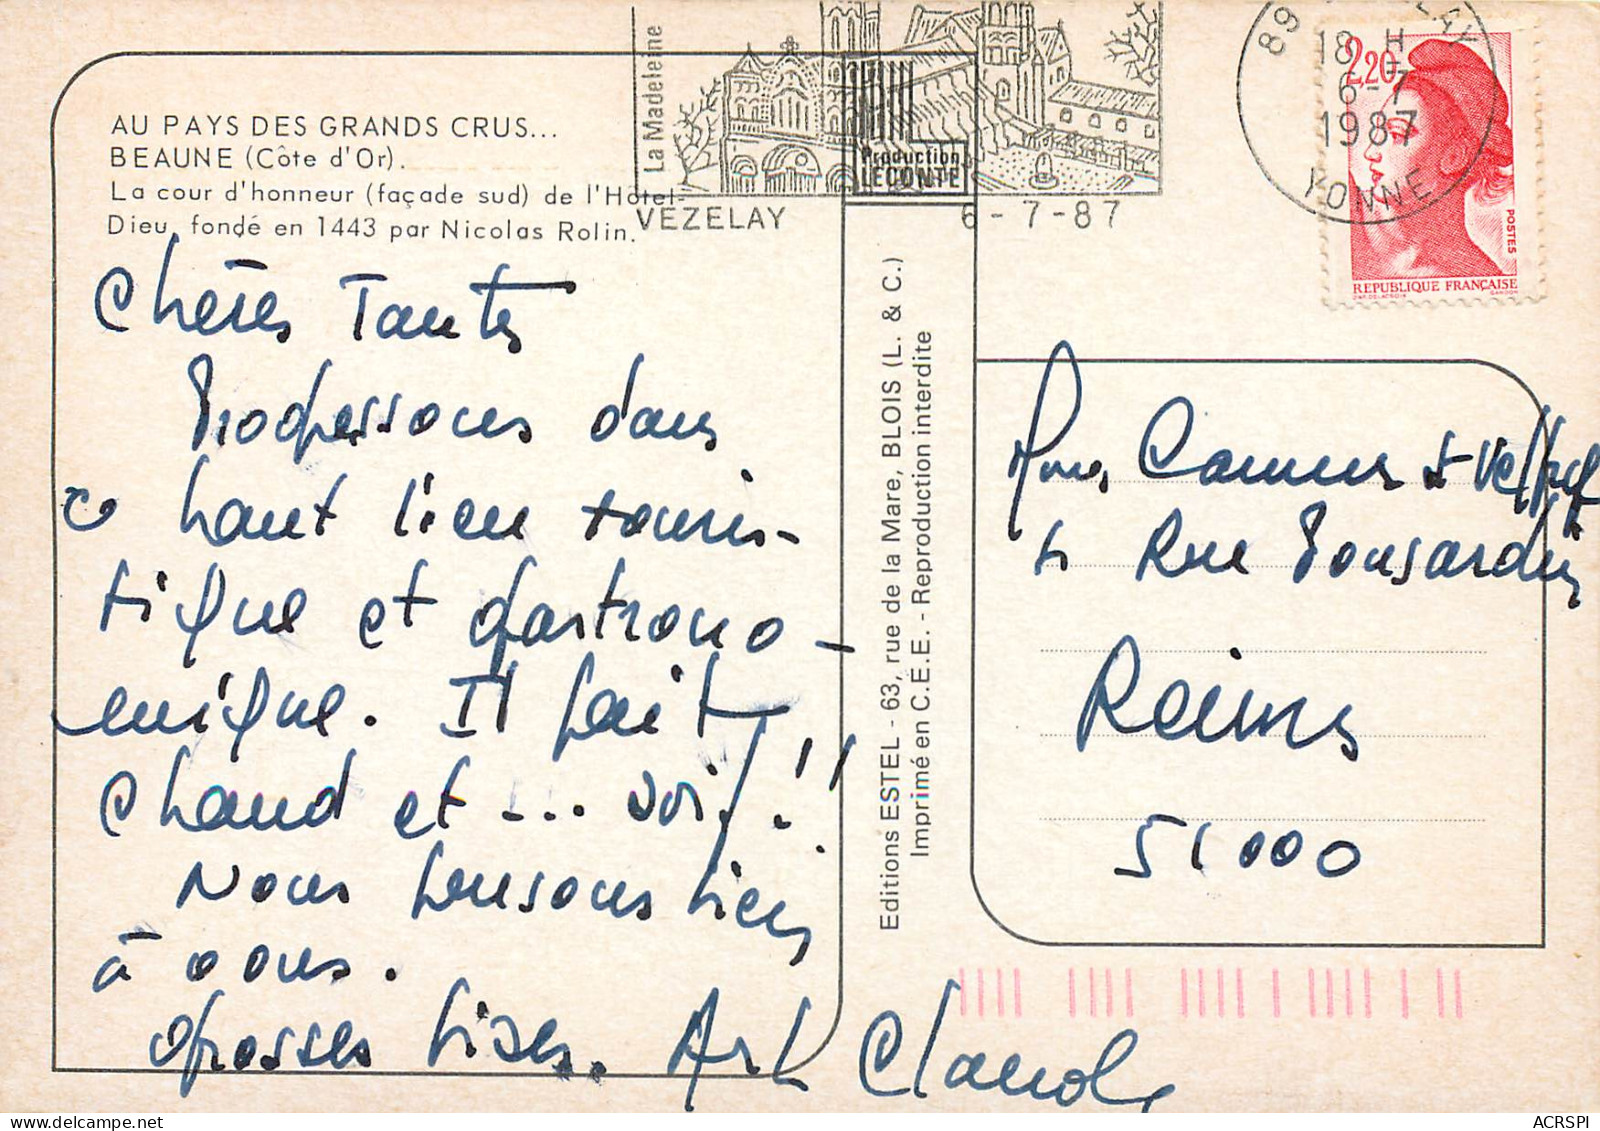 AU PAYS DES GRANDS CRUS...
BEAUNE (Côte d'Or).
La cour d'honneur (façade sud) de l'Hôtel-
Dieu, fondé en 1443 par Nicolas Rolin.
Chères Tantes
dans
ce haut lieu touris-
tique et gastrono-
mique. Il fait
chaud et ... soif !!
Nous pensons bien
à vous.
grosses bises. Claude
La Madeleine
VEZELAY
6-7-87
Production
LECONTE
Editions ESTEL - 63, rue de la Mare, BLOIS (L. & C.)
Imprimé en C.E.E. - Reproduction interdite
89
18 H
6-7
1987
YONNE
2,20
POSTES
REPUBLIQUE FRANÇAISE
Rue Ponsardin
Reims
51000
ACRSPI